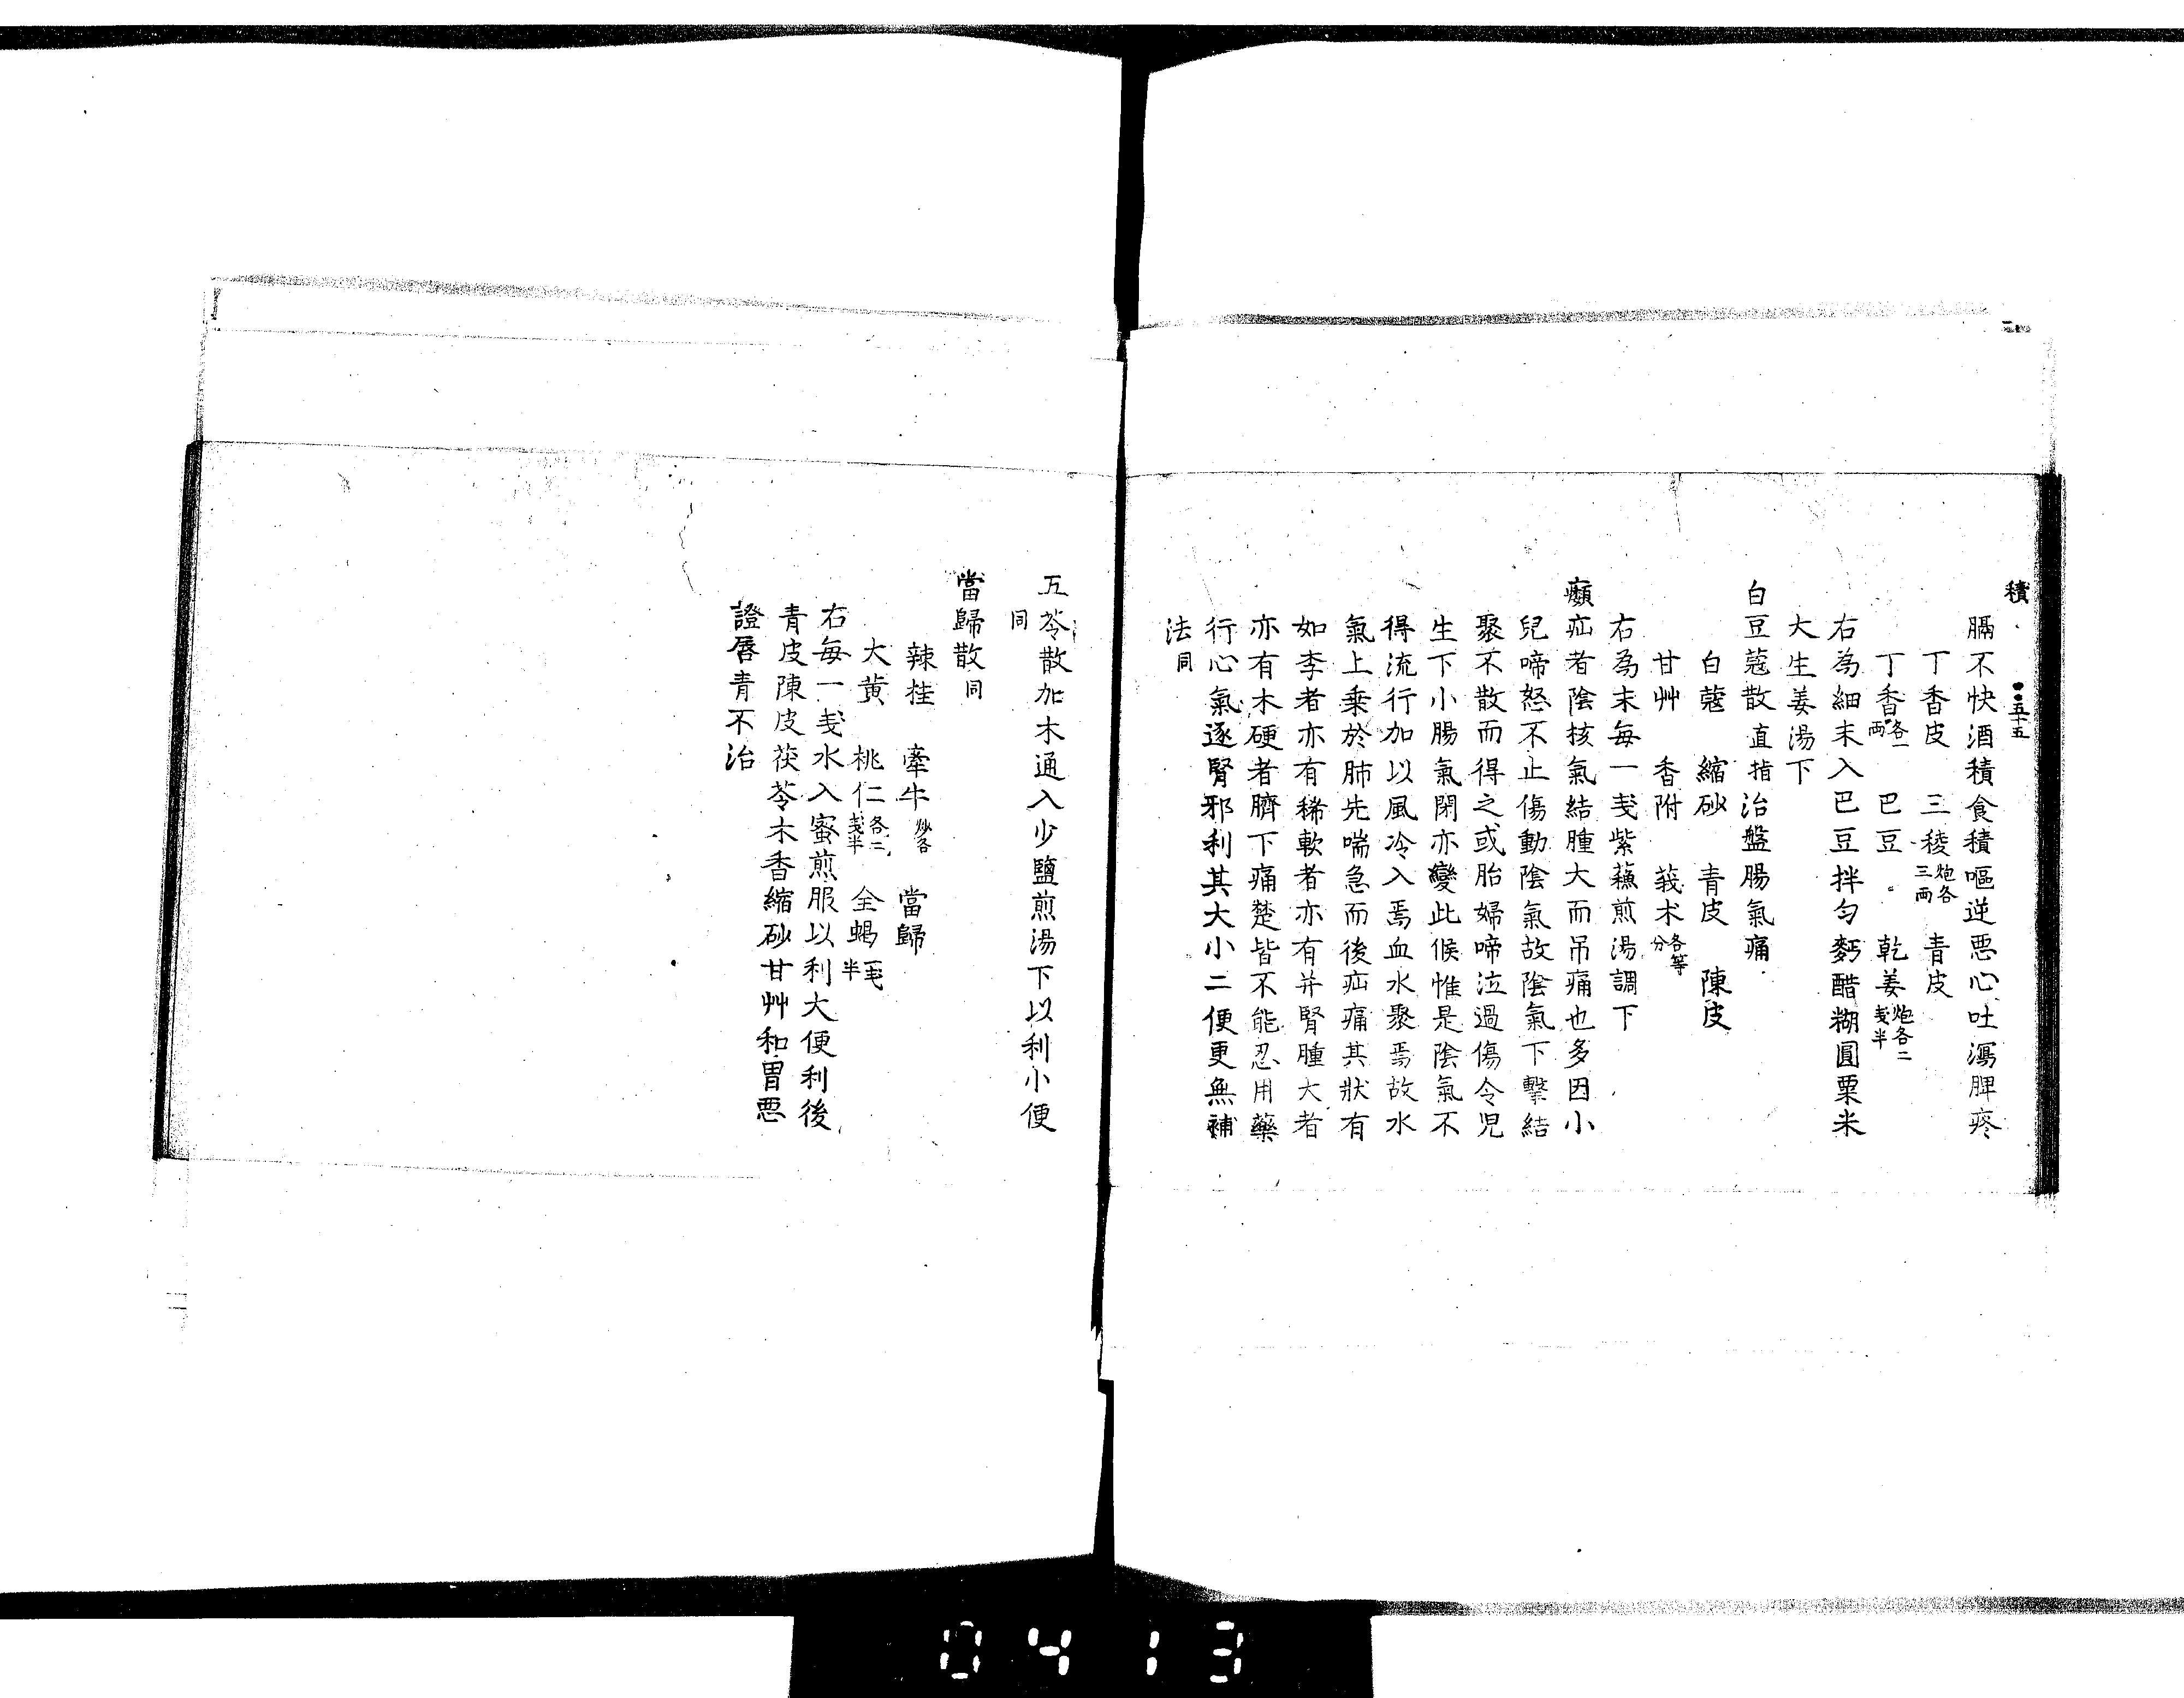 積 五十五
膈不快酒積食積嘔逆悪心吐瀉脾疼
丁香皮 三稜炮各三両 青皮
丁香各一両 巴豆 乾姜炮各二戔半
右為細末入巴豆拌匀麪醋糊圓粟米
大生姜湯下
白豆蔻散直指治盤腸氣痛
白蔻 縮砂 青皮 陳皮
甘艸 香附 莪朮各等分
右為末每一戔紫蘓煎湯調下
㿗疝者陰核氣結腫大而吊痛也多因小
兒啼怒不止傷動陰氣故陰氣下擊結
聚不散而得之或胎婦啼泣過傷令児
生下小腸氣閉亦變此候惟是陰氣不
得流行加以風冷入焉血水聚焉故水
氣上乗於肺先喘急而後疝痛其狀有
如李者亦有稀軟者亦有并腎腫大者
亦有木硬者臍下痛楚皆不能忍用藥
行心氣逐腎邪利其大小二便更無補
法同
五苓散加木通入少鹽煎湯下以利小便
同
當歸散同
辣桂 牽牛炒各 當歸
大黄 桃仁各二戔半 全蝎一戔半
右每一戔水入蜜煎服以利大便利後
青皮陳皮茯苓木香縮砂甘艸和胃悪
證唇青不治
0413